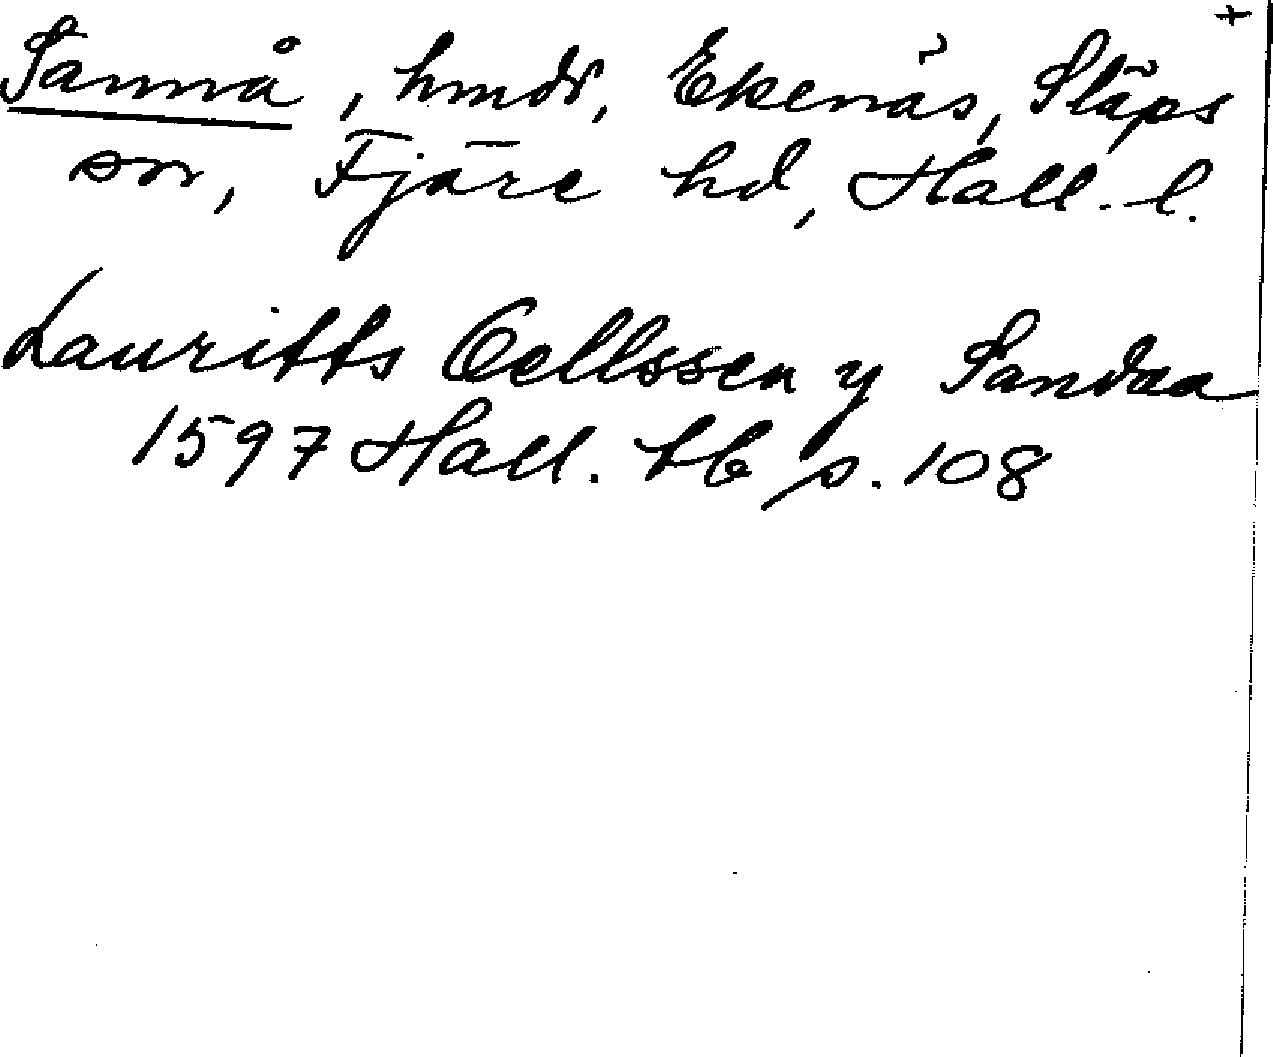 +
Sannå, hmdr, Ekenäs, Släps
sn, Fjäre hd, Hall. l.
Lauritts Oellssen y Sandaa
1597 Hall. tb p. 108